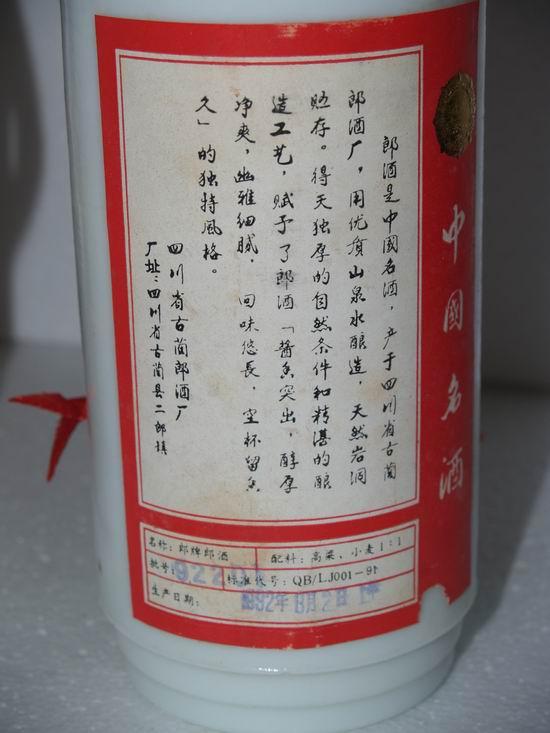 郎酒是中國名酒，产于四川省古蔺
郎酒厂，用优质山泉水酿造，天然岩洞
贮存。得天独厚的自然条件和精湛的酿
造工艺，赋予了郎酒「酱香突出，醇厚
净爽，幽雅细腻，回味悠長，空杯留香
久」的独特風格。
四川省古蔺郎酒厂
厂址：四川省古蔺县二郎镇
中國名酒
名称：郎牌郎酒
配料：高粱、小麦1:1
批号：
标准代号：QB/LJ001-91
生产日期：1992年8月2日